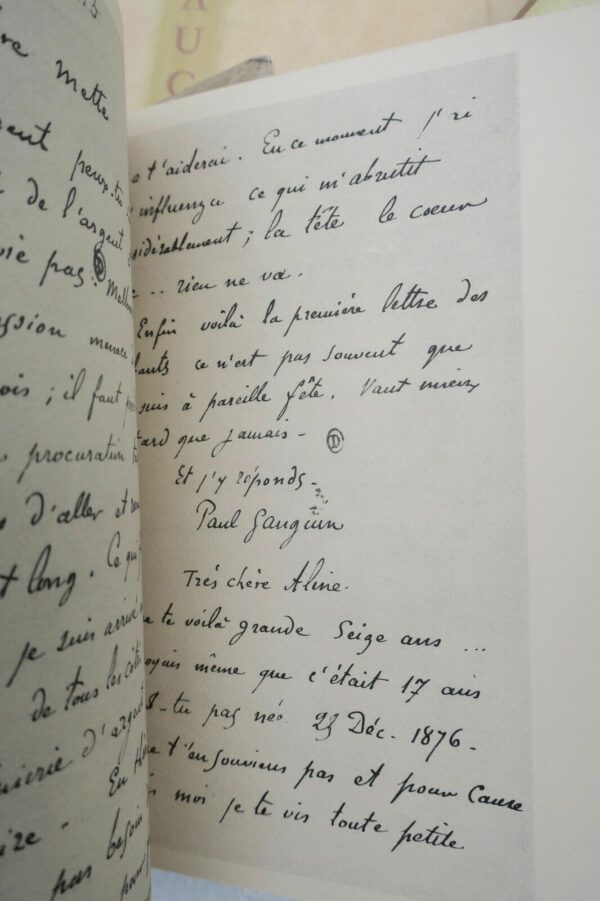 AUC
Mette
peux-tu
de l'argent
pas.
menace
il faut
procuration
d'aller et
long. Ce qui
je suis arrivé
de tous les
d'argent
En
pas besoin
pour
t'aiderai. En ce moment j'ai
influenza ce qui m'abrutit
; la tête le coeur
... rien ne va.
Enfin voilà la première lettre des
ce n'est pas souvent que
suis à pareille fête. Vaut mieux
tard que jamais -
Et j'y réponds -
Paul Gauguin
Très chère Aline.
te voilà grande Seize ans ...
même que c'était 17 ans
-tu pas née Déc. 1876 -
t'en souviens pas et pour cause
moi je te vis toute petite